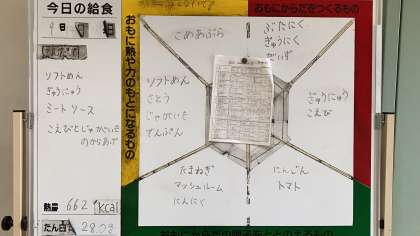 今日の給食
ソフトめん
ぎゅうにゅう
ミートソース
こえびとじゃがいもの
からあげ
熱量 662 kcal
たん白
おもに熱や力のもとになるもの
こめあぶら
ソフトめん
さとう
じゃがいも
でんぷん
おもにからだをつくるもの
ぶたにく
ぎゅうにく
だいず
ぎゅうにゅう
こえび
たまねぎ
マッシュルーム
にんにく
にんじん
トマト
おもにからだの調子をととのえるもの